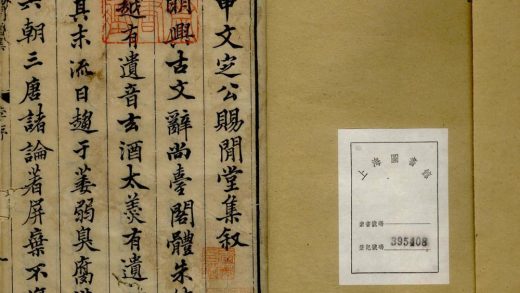 申文定公賜閒堂集叙
明興古文辭尚臺閣體朱
越有遺音玄酒太羹有遺
其末流日趨于萎弱臭腐
六朝三唐諸論著屏棄不
上海圖書館
索書號碼
登記號碼 395408